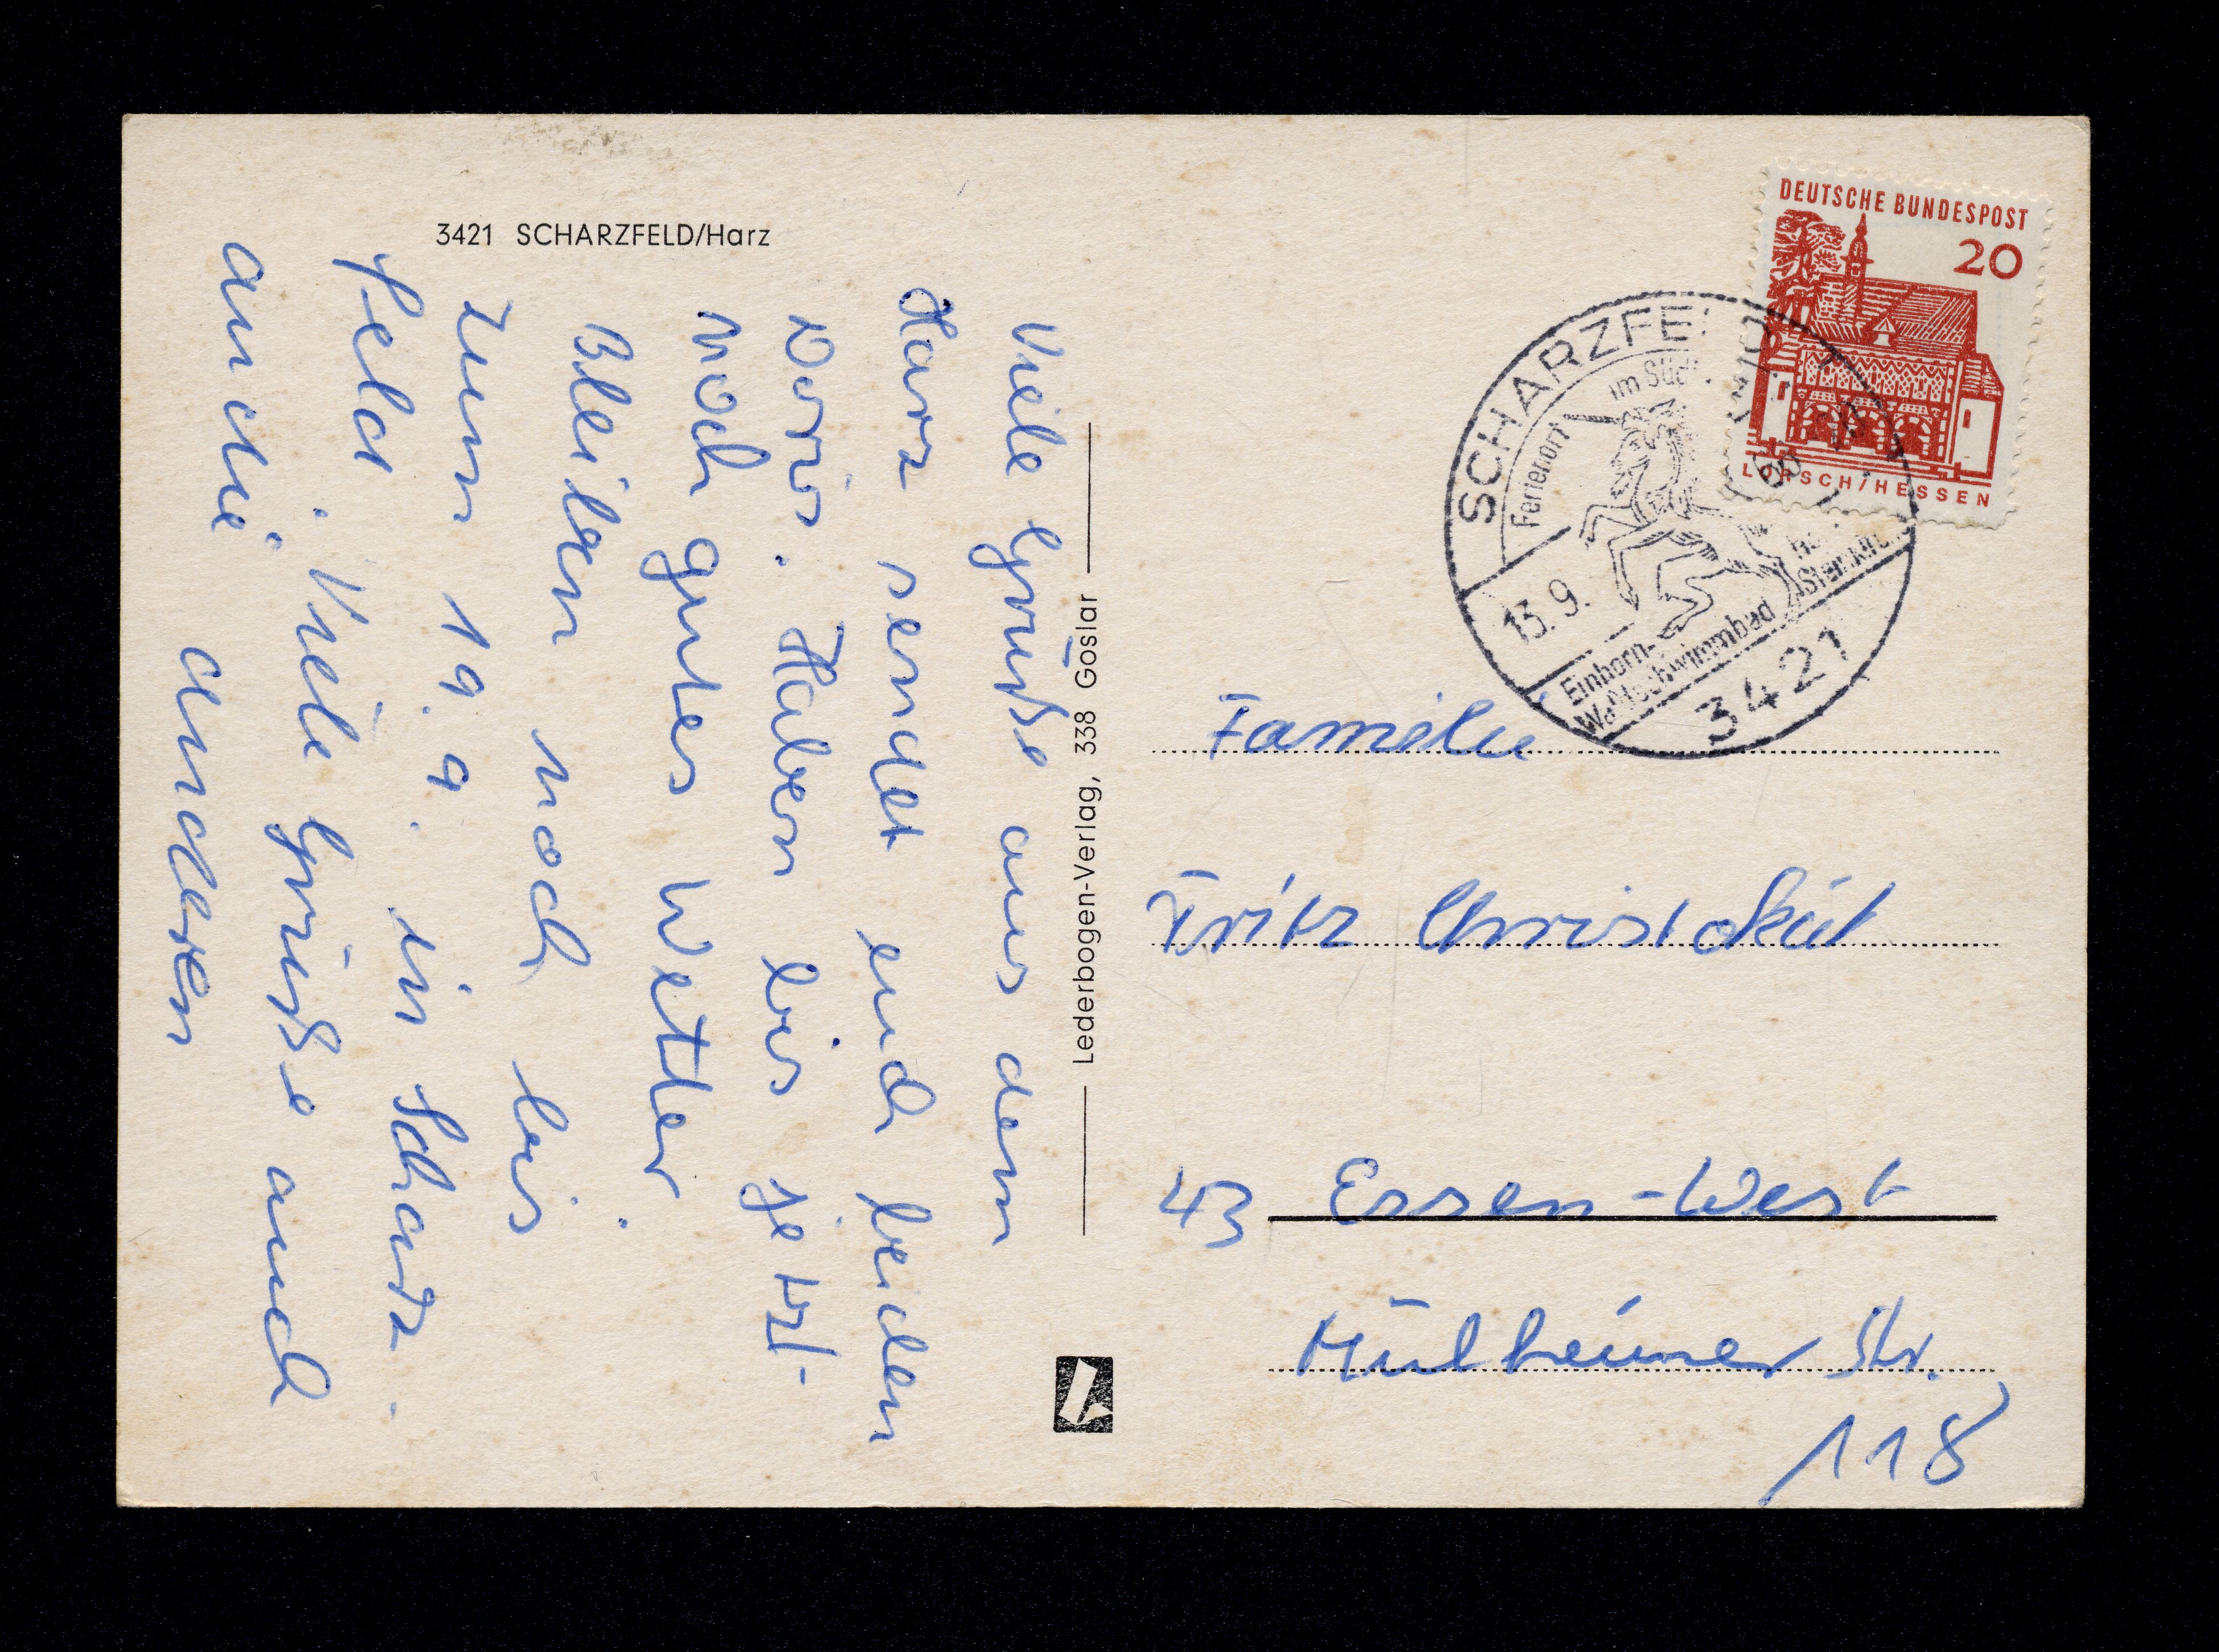 3421 SCHARZFELD/Harz
Viele Grüße aus dem
Harz sendet euch beiden
Doris. Haben bis jetzt-
noch gutes Wetter.
Bleiben noch bis
zum 19.9. in Scharz-
feld. Viele Grüße auch
an die anderen
Lederbogen-Verlag, 338 Goslar
DEUTSCHE BUNDESPOST
20
LORSCH/HESSEN
SCHARZFELD
Ferienort im Süd
13.9.
Einhorn-
Waldschwimmbad
3421
Familie
Fritz
43 Essen-West
Mülheimer Str.
118